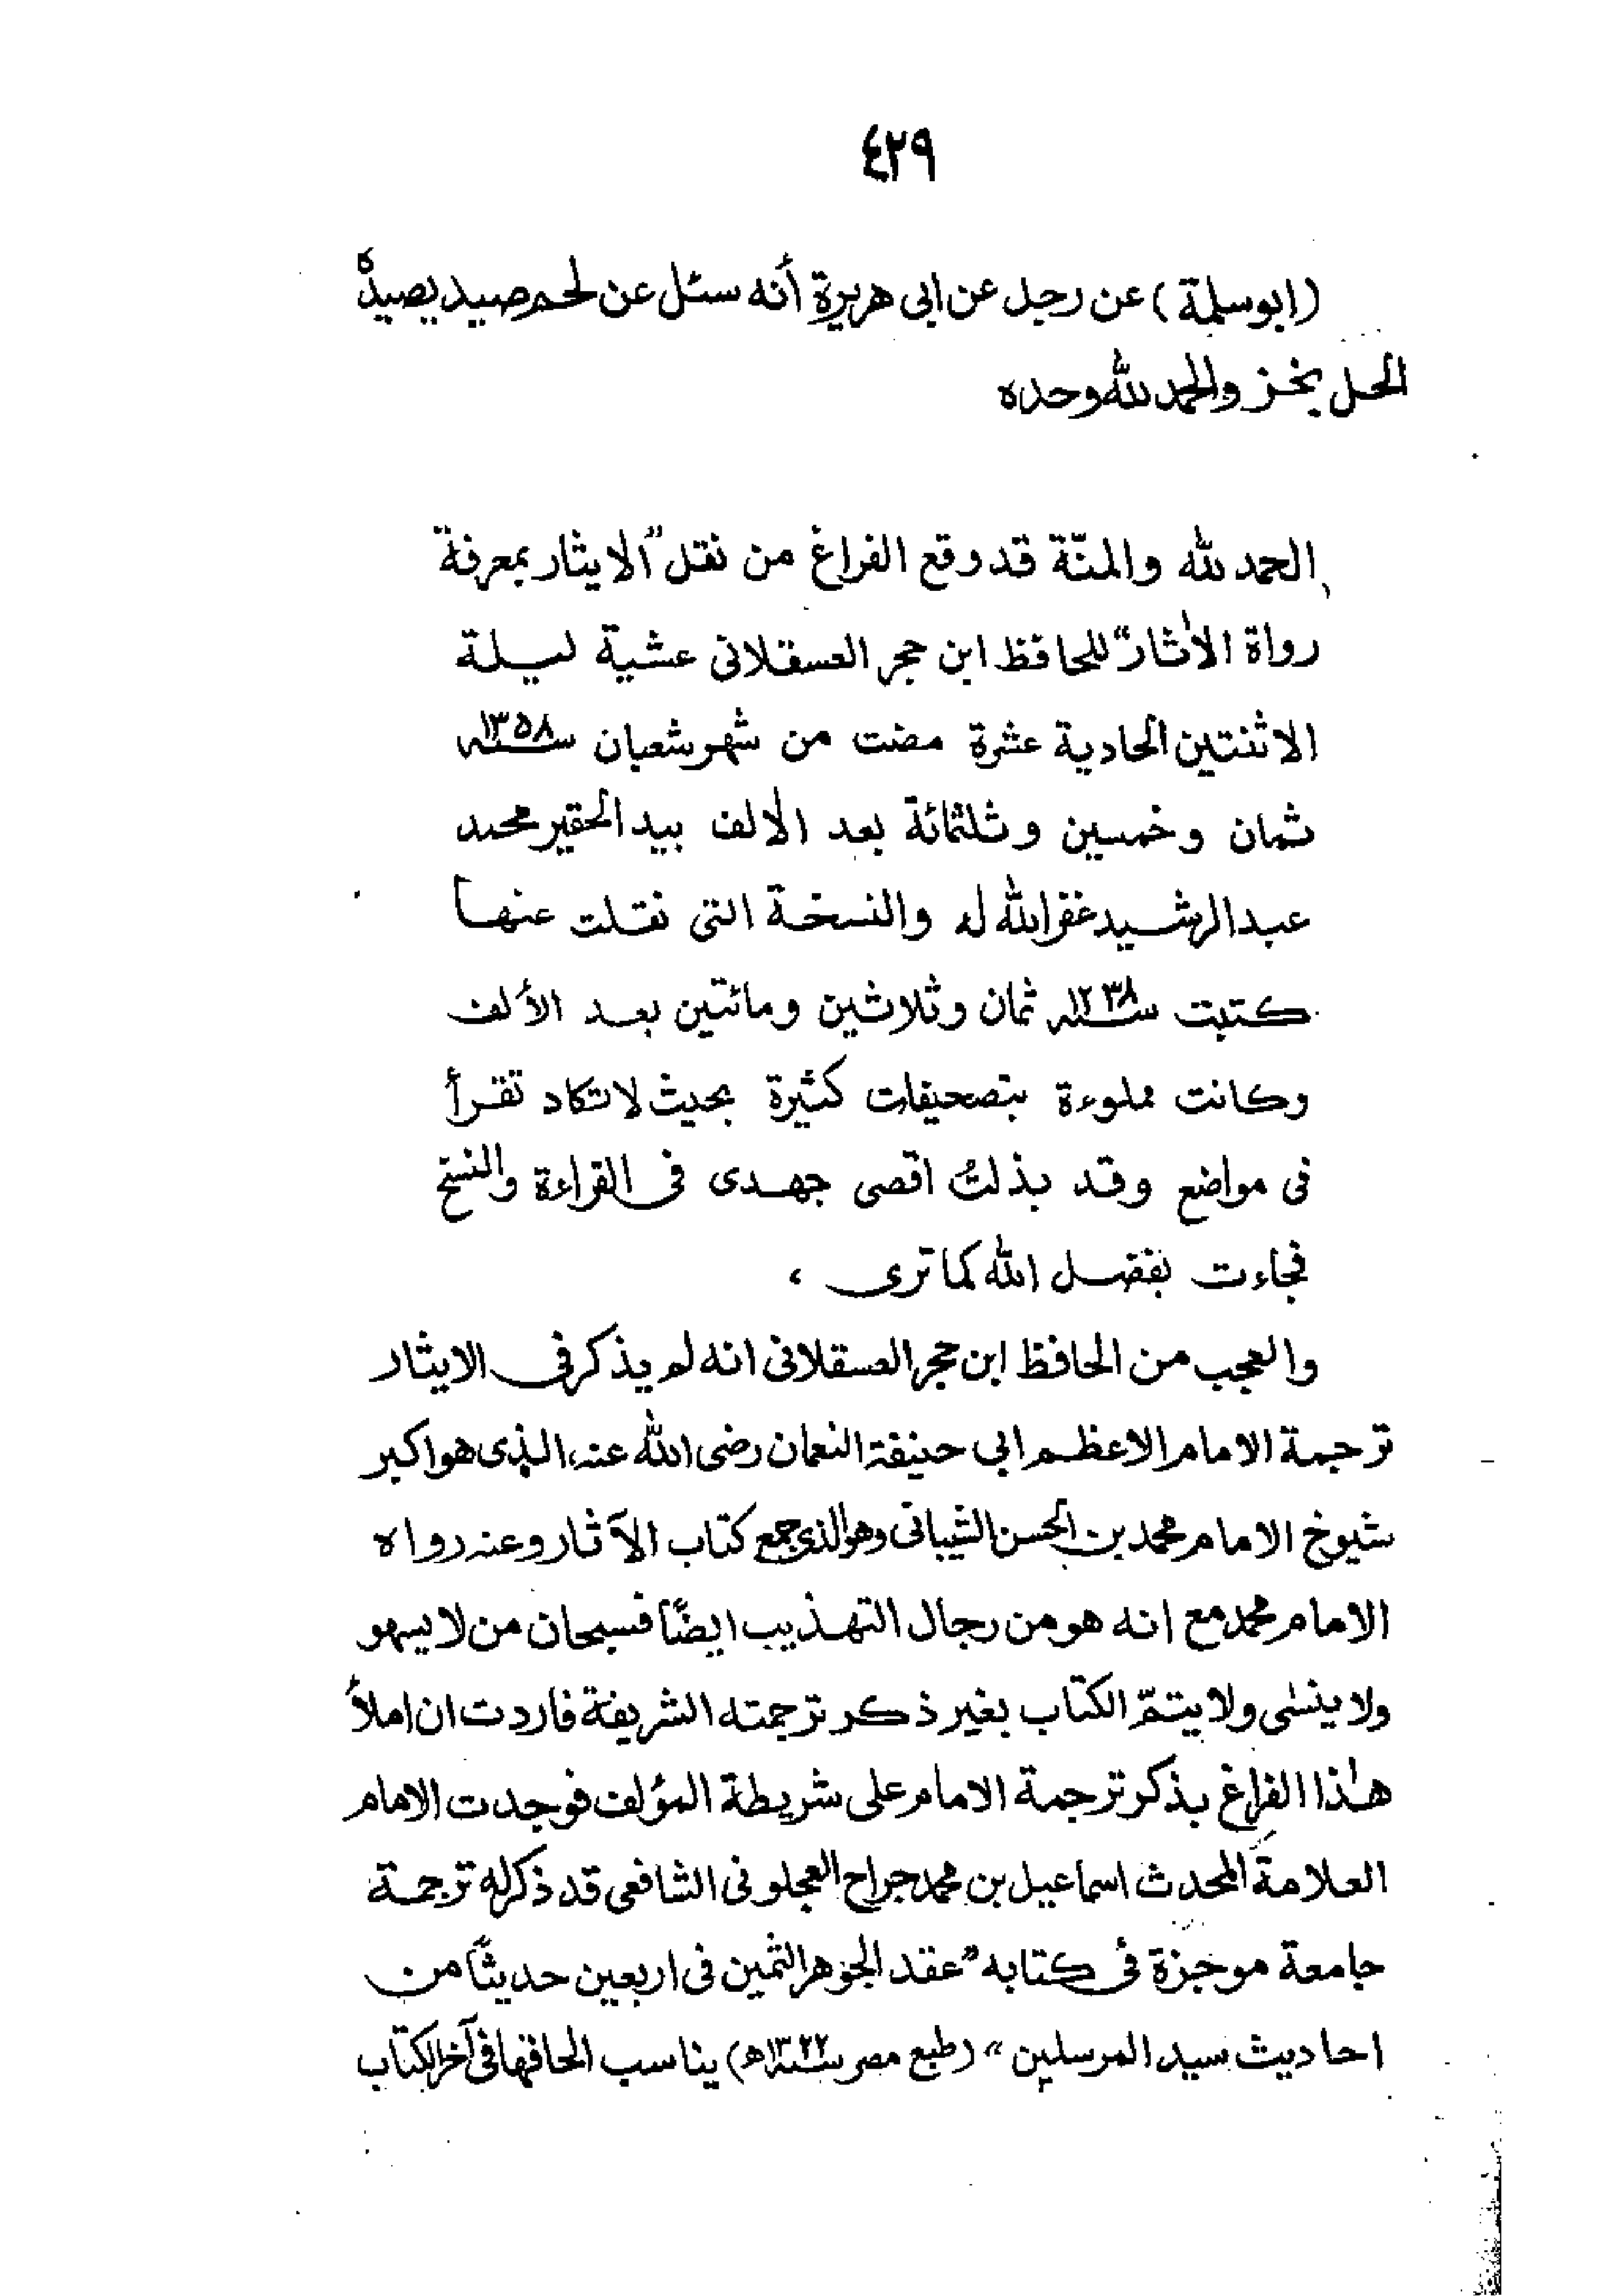 ٤٢٩
(ابوسلمة) عن رجل عن ابى هريرة أنه سئل عن لحم صيد يصيده
الحل بخز والحمد لله وحده
الحمد لله والمنّة قد وقع الفراغ من نقل "الايثار بمعرفة
رواة الأثار" للحافظ ابن حجر العسقلانى عشية ليلة
الاثنتين الحادية عشرة مضت من شهر شعبان سنه ١٣٥٨
ثمان وخمسين وثلثمائة بعد الألف بيد الحقير محمد
عبد الرشيد غفر الله له والنسخة التى نقلت عنها
كتبت سنه ١٢٣٨ ثمان وثلاثين ومائتين بعد الألف
وكانت مملوءة بتصحيفات كثيرة بحيث لا تكاد تقرأ
فى مواضع وقد بذلتُ اقصى جهدى فى القراءة والنسخ
فجاءت بفضل الله كما ترى ،
والعجب من الحافظ ابن حجر العسقلانى انه لم يذكر فى الايثار
ترجمة الامام الاعظم ابي حنيفة النعمان رضى الله عنه، الذى هو اكبر
شيوخ الامام محمد بن الحسن الشيبانى وهو الذى جمع كتاب الآثار وعنه رواه
الامام محمد مع انه هو من رجال التهذيب ايضًا فسبحان من لا يسهو
ولا ينسٰى ولا يتمّ الكتاب بغير ذكر ترجمته الشريفة فاردت ان املأ
هٰذا الفراغ بذكر ترجمة الامام على شريطة المؤلف فوجدت الامام
العلامةَ المحدث اسماعيل بن محمد جراح العجلونى الشافعى قد ذكر له ترجمة
جامعة موجزة فى كتابه "عقد الجوهر الثمين فى اربعين حديثًا من
احاديث سيد المرسلين" (طبع مصر سنه ١٣٢٢ھ) يناسب الحاقها فى آخر الكتاب